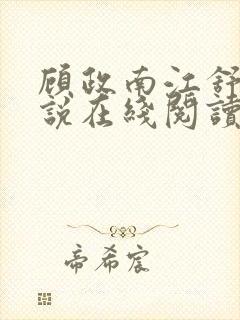 顾政南江舒
說在綫閱讀
帝希宸